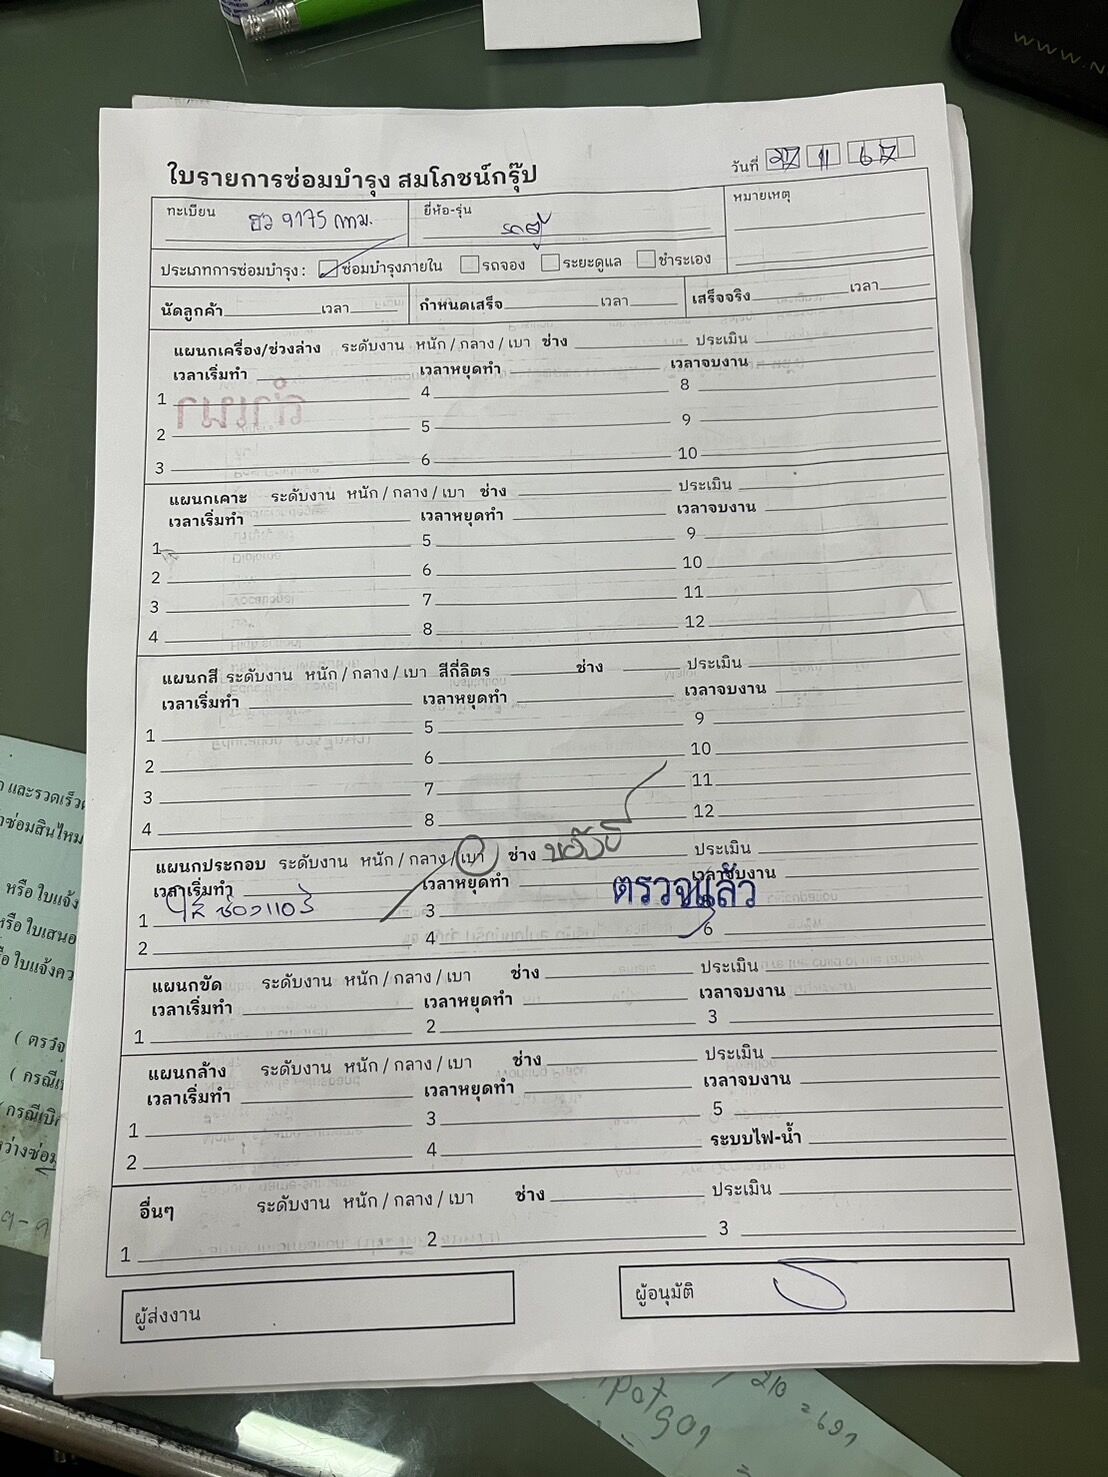 ใบรายการซ่อมบำรุง สมโภชน์กรุ๊ป
วันที่ 27 11 67
ทะเบียน ฮว 9175 กทม.
ยี่ห้อ-รุ่น รถตู้
หมายเหตุ
ประเภทการซ่อมบำรุง : ซ่อมบำรุงภายใน รถจอง ระยะดูแล ชำระเอง
นัดลูกค้า เวลา กำหนดเสร็จ เวลา เสร็จจริง เวลา
แผนกเครื่อง/ช่วงล่าง ระดับงาน หนัก / กลาง / เบา ช่าง ประเมิน
เวลาเริ่มทำ เวลาหยุดทำ เวลาจบงาน
1 4 8
2 5 9
3 6 10
แผนกเคาะ ระดับงาน หนัก / กลาง / เบา ช่าง ประเมิน
เวลาเริ่มทำ เวลาหยุดทำ เวลาจบงาน
1 5 9
2 6 10
3 7 11
4 8 12
แผนกสี ระดับงาน หนัก / กลาง / เบา สีกี่ลิตร ช่าง ประเมิน
เวลาเริ่มทำ เวลาหยุดทำ เวลาจบงาน
1 5 9
2 6 10
3 7 11
4 8 12
แผนกประกอบ ระดับงาน หนัก / กลาง / เบา ช่าง ประเมิน
เวลาเริ่มทำ เวลาหยุดทำ เวลาจบงาน
ตรวจแล้ว
1 3
2 4 6
แผนกขัด ระดับงาน หนัก / กลาง / เบา ช่าง ประเมิน
เวลาเริ่มทำ เวลาหยุดทำ เวลาจบงาน
1 2 3
แผนกล้าง ระดับงาน หนัก / กลาง / เบา ช่าง ประเมิน
เวลาเริ่มทำ เวลาหยุดทำ เวลาจบงาน
1 3 5
2 4 ระบบไฟ-น้ำ
อื่นๆ ระดับงาน หนัก / กลาง / เบา ช่าง ประเมิน
1 2 3
ผู้ส่งงาน
ผู้อนุมัติ